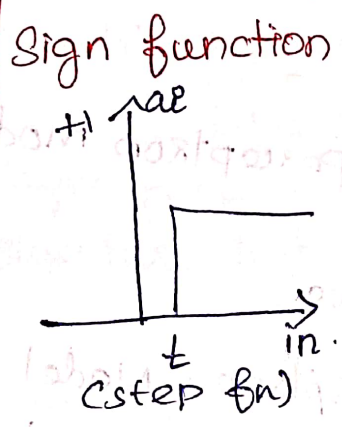 Sign function
+1
al
t
in.
(step fn)